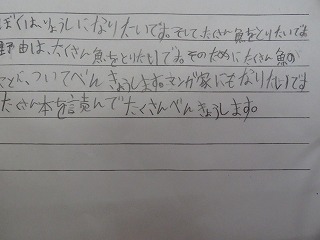 ぼくは、りょうしになりたいです。そして、たくさん魚をとりたいです
理由は、たくさん魚をとりたいです。そのためにたくさん魚の
ことについてべんきょうします。マンガ家にもなりたいです
たくさん本を読んでたくさんべんきょうします。